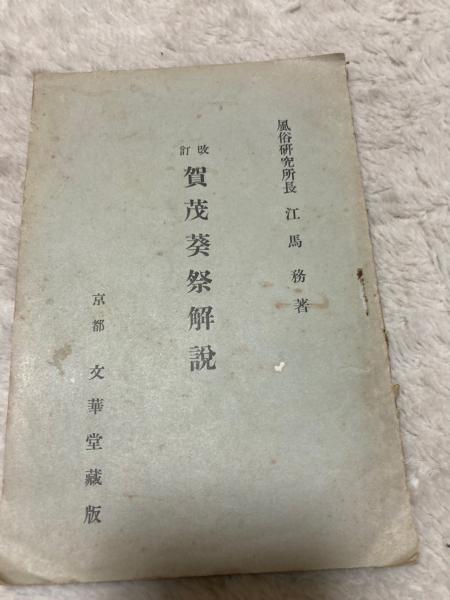 風俗研究所長 江馬務著
改訂
賀茂葵祭解說
京都 文華堂藏版